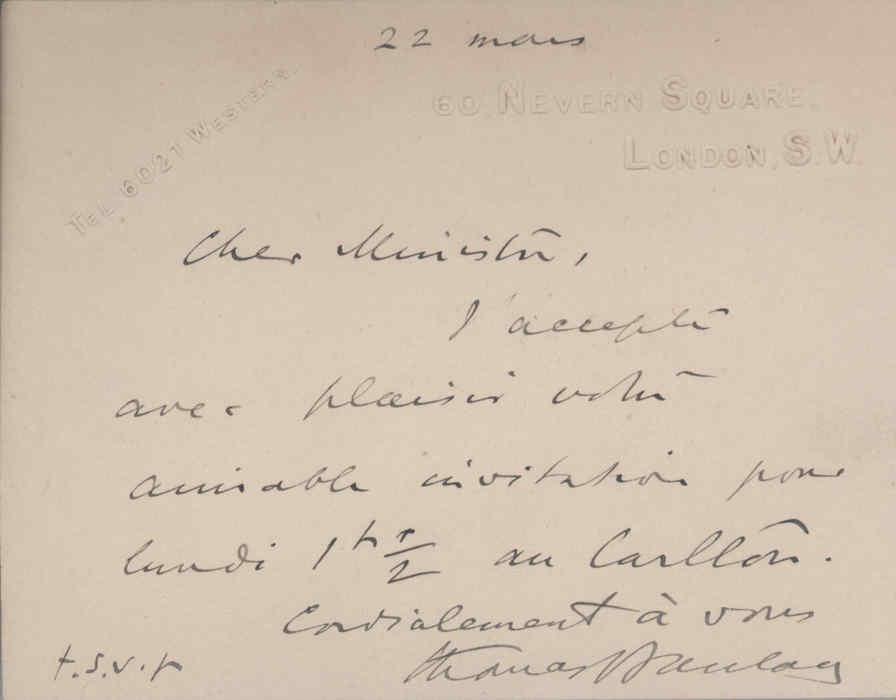 22 mars
TEL. 6021 WESTERN.
60, NEVERN SQUARE.
LONDON, S.W.
Cher Ministre,
J'accepte
avec plaisir votre
aimable invitation pour
lundi 1h 1/2 au Carlton.
Cordialement à vous
Thomas Barclay
t.s.v.p